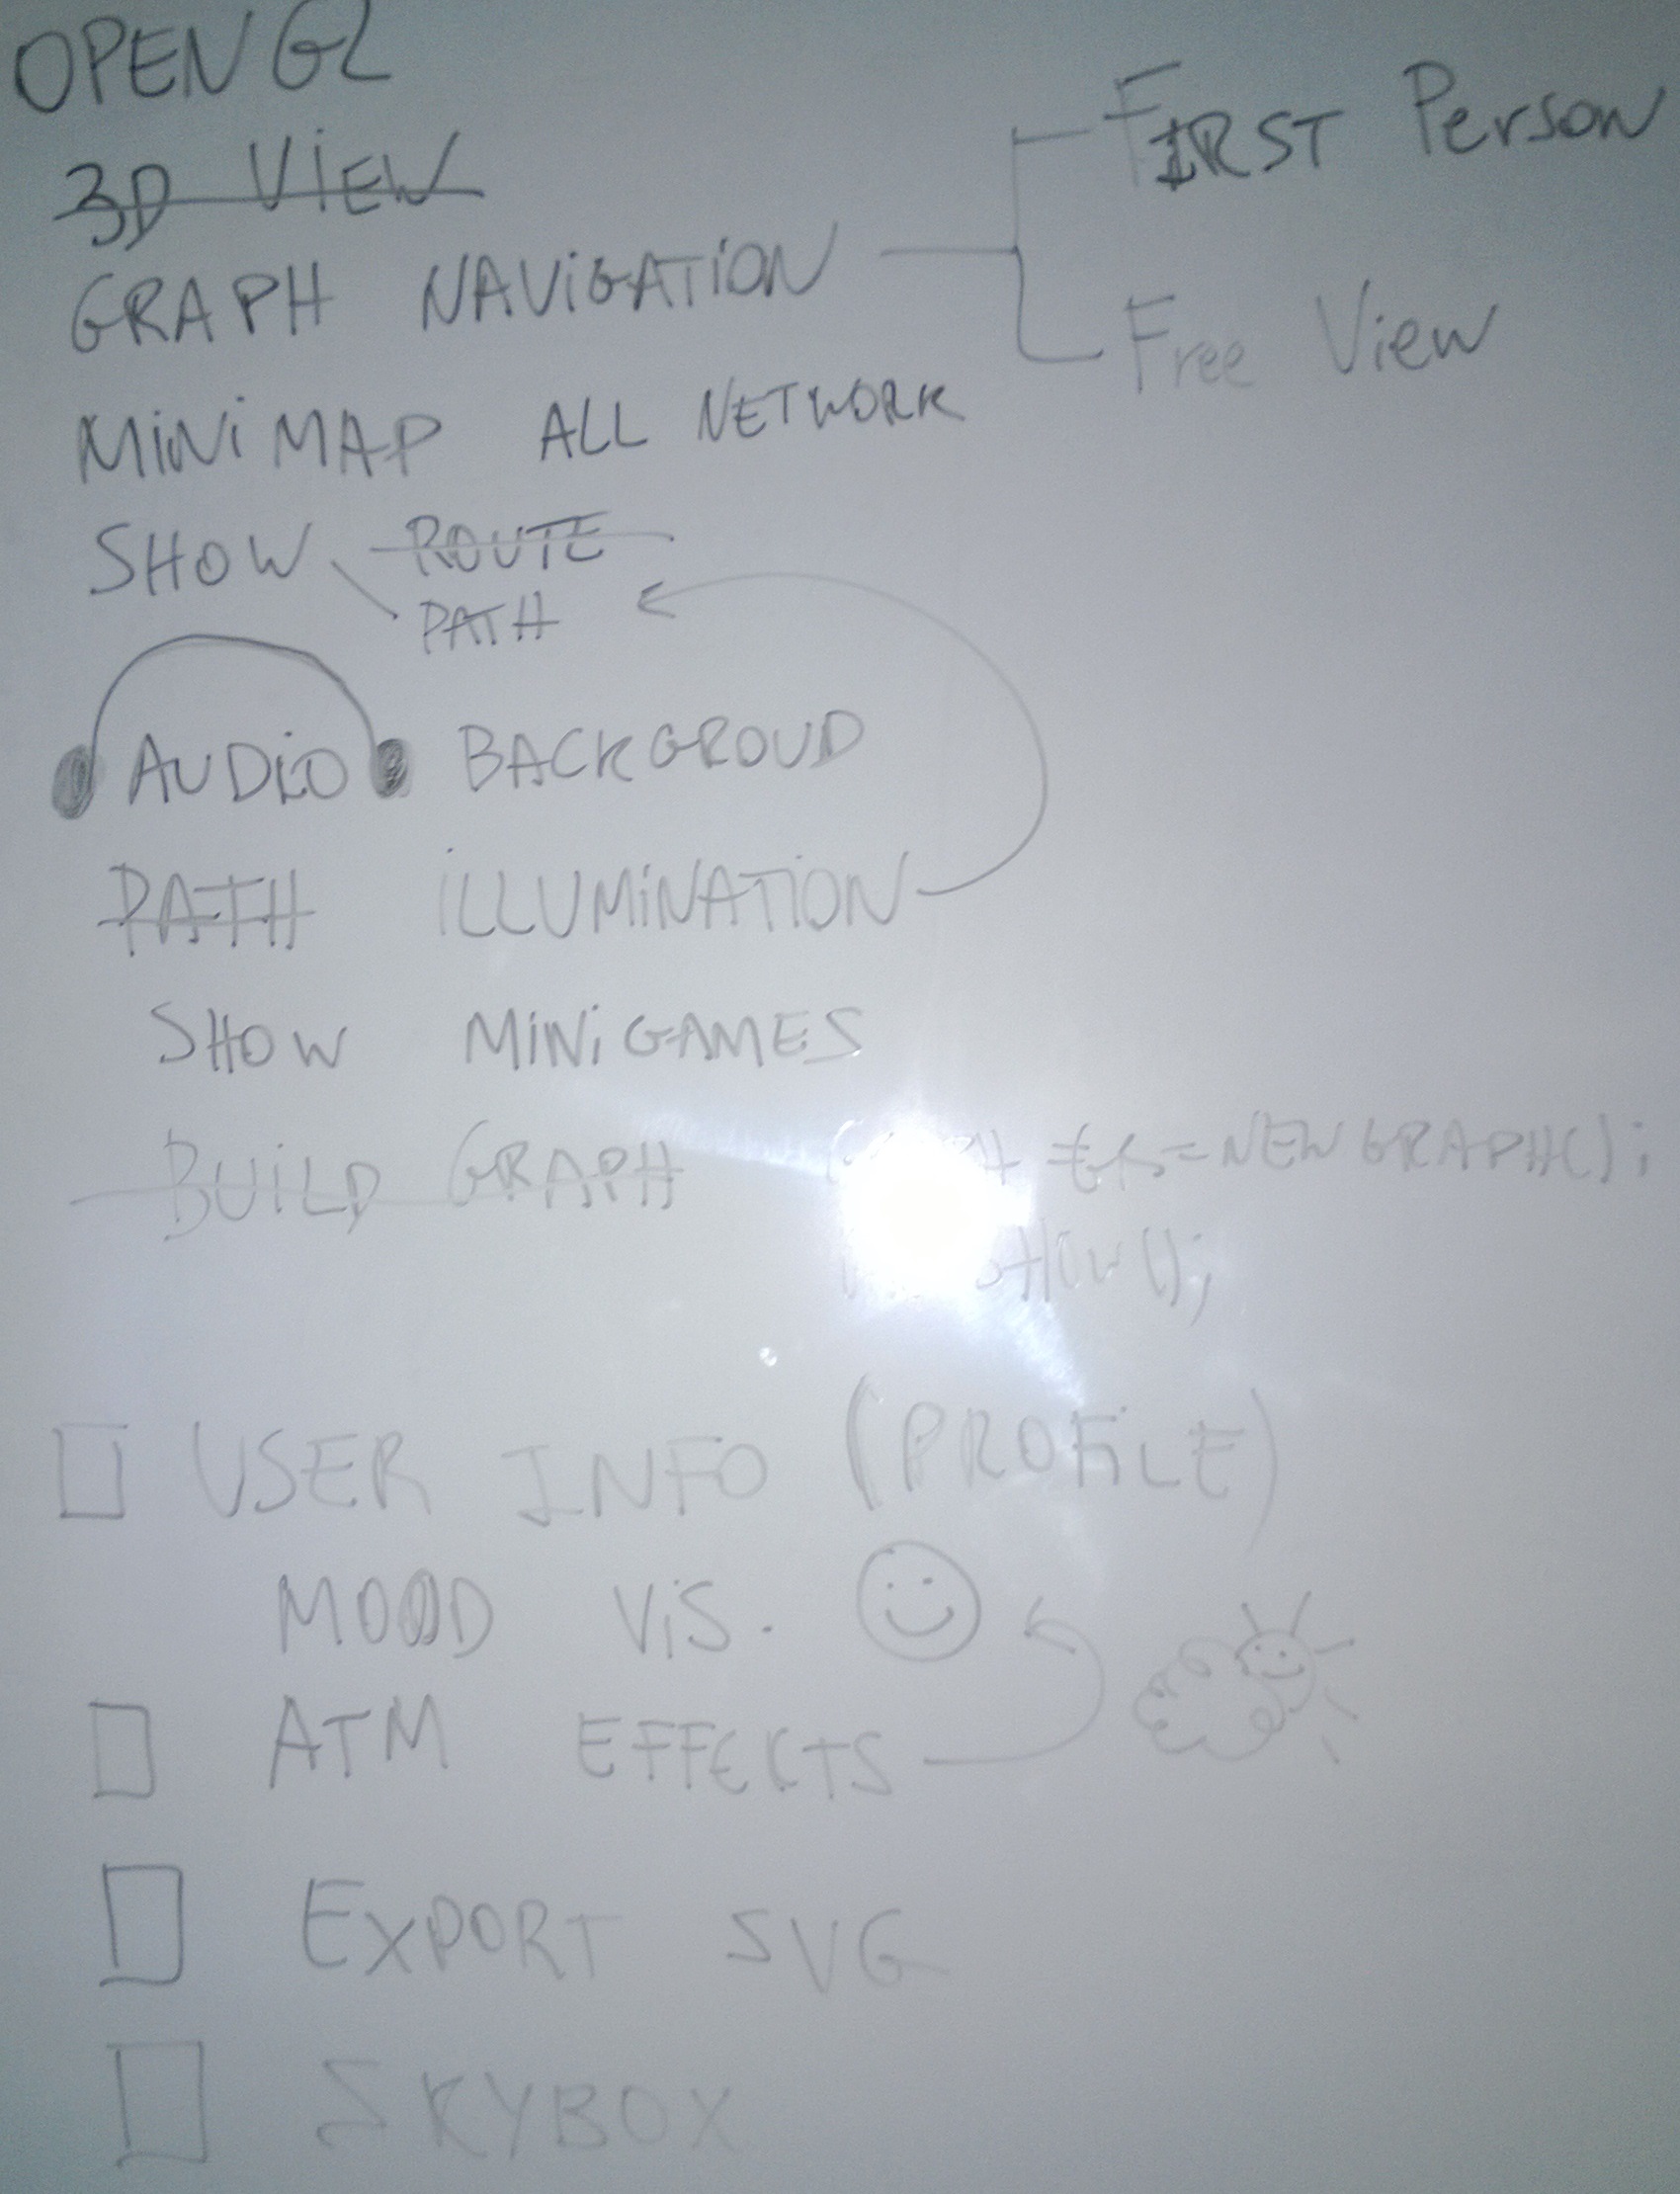 OPENGL
3D VIEW
FIRST Person
GRAPH NAVIGATION
Free View
MINIMAP ALL NETWORK
SHOW ROUTE
PATH
AUDIO BACKGROUD
PATH ILLUMINATION
SHOW MINIGAMES
BUILD GRAPH = NEW GRAPH();
USER INFO (PROFILE)
MOOD VIS.
ATM EFFECTS
EXPORT SVG
SKYBOX